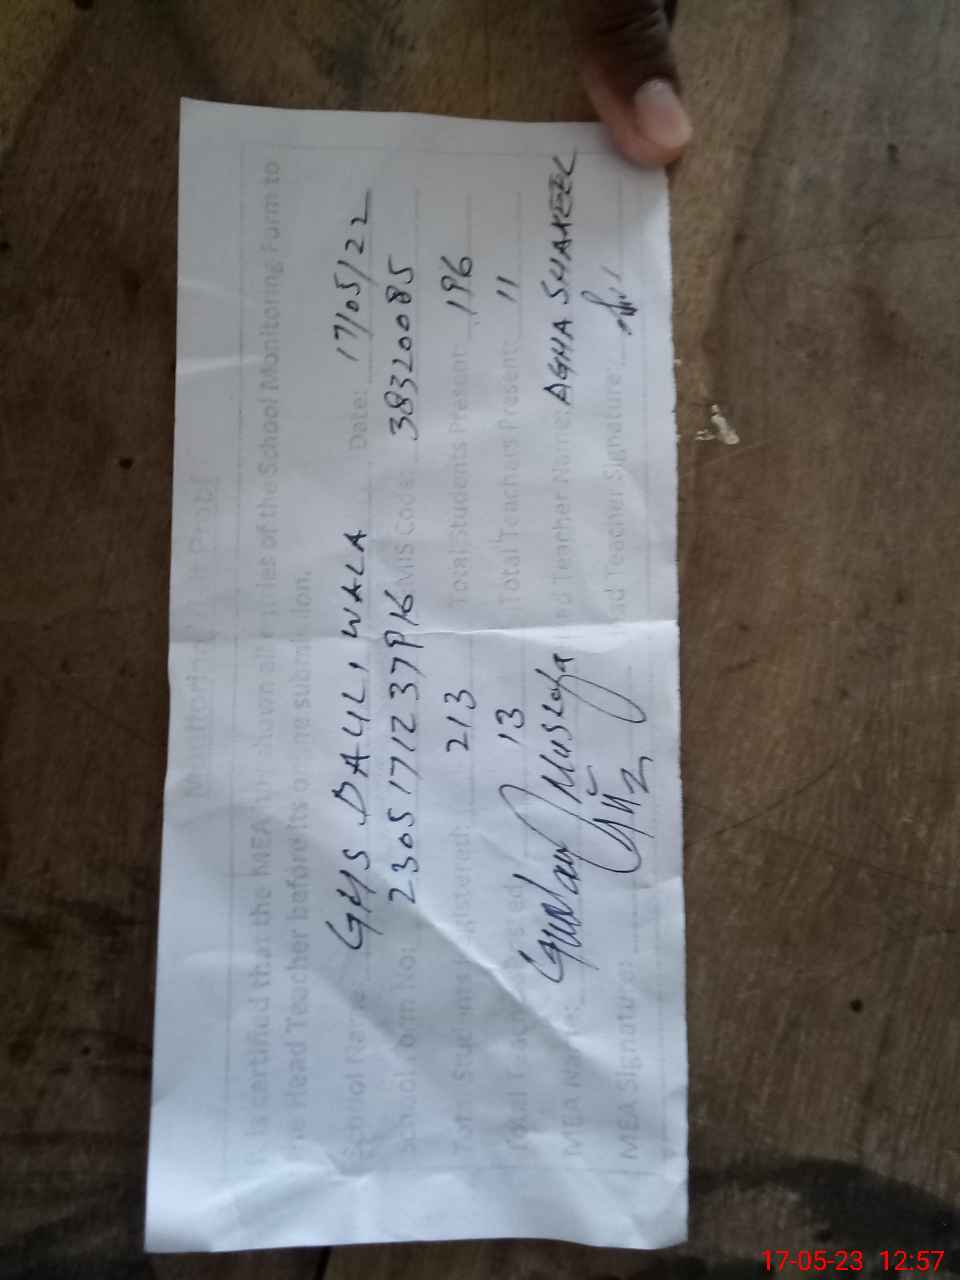 Monitoring Proof
is certified that the MEA has shown all entries of the School Monitoring Form to
the Head Teacher before its online submission.
School Name: GHS DAULI WALA Date: 17/05/22
School Form No: 2305171237P16 EMIS Code: 38320085
Total Students Registered: 213 Total Students Present: 196
Total Teachers 13 Total Teachers Present: 11
MEA Name: Ghulam Mustafa Head Teacher Name: AGHA SHAKEEL
MEA Signature: Head Teacher Signature:
17-05-23 12:57